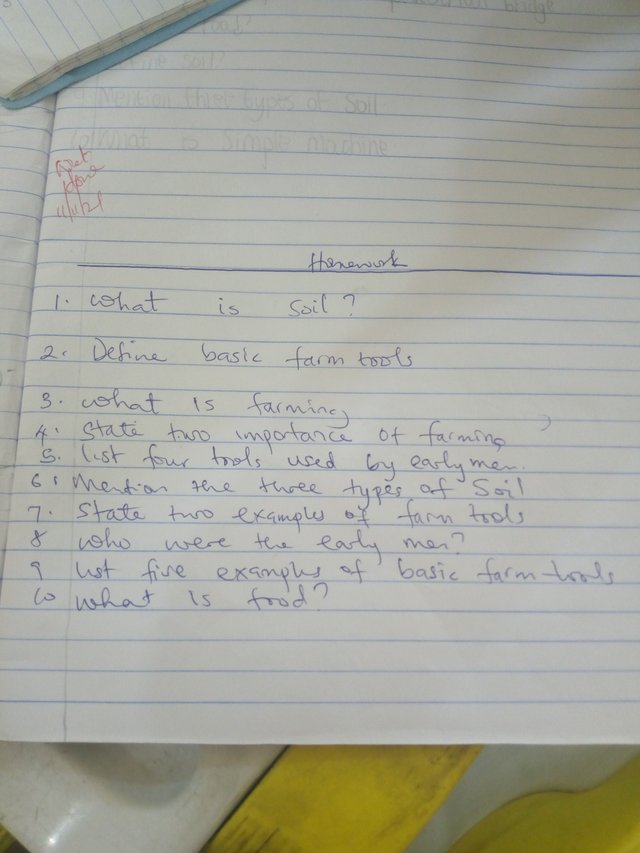 badge
soil?
Mention three types of Soil
What is Simple Machine
done
11/11/21
Homework
1. What is Soil?
2. Define basic farm tools
3. What is farming
4. State two importance of farming
5. List four tools used by early men.
6. Mention the three types of Soil
7. State two examples of farm tools
8 who were the early men?
9 list five examples of basic farm tools
10 what is food?